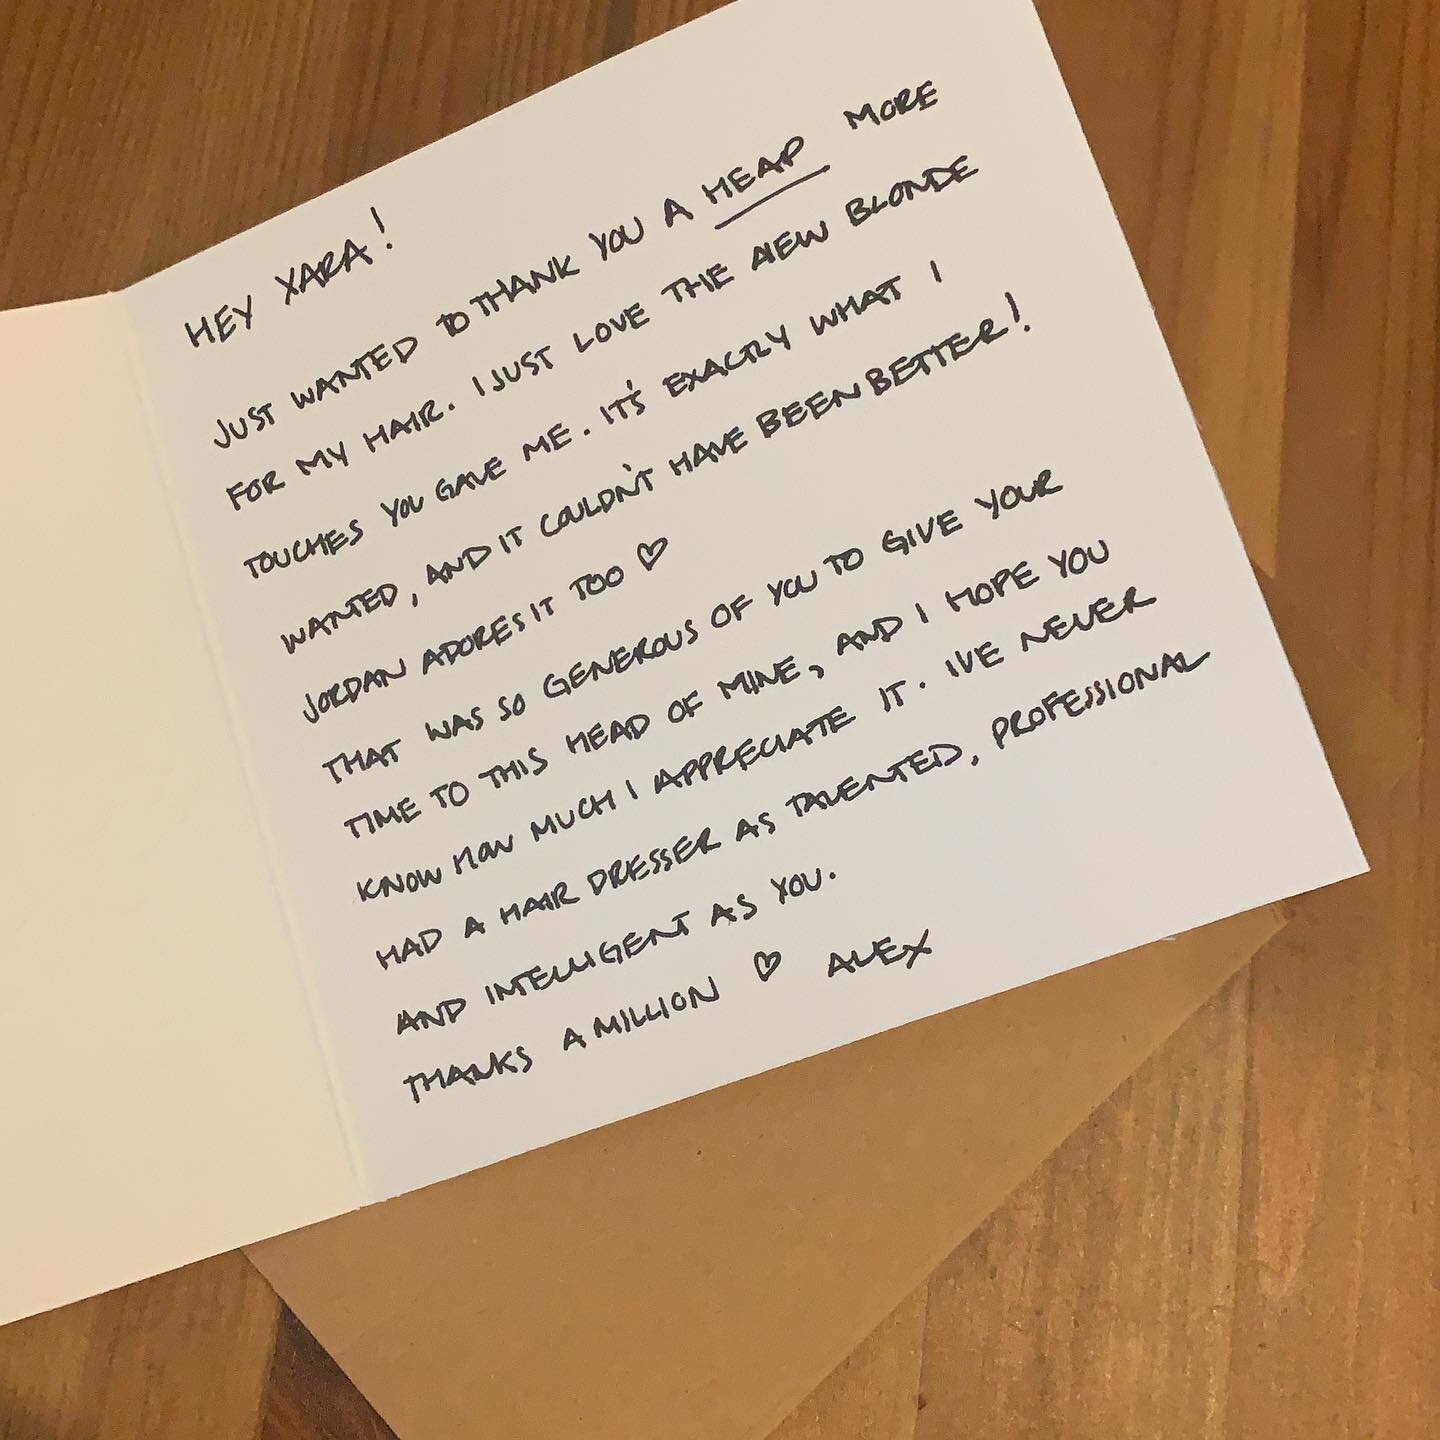 HEY XARA!
JUST WANTED TO THANK YOU A HEAP MORE
FOR MY HAIR. I JUST LOVE THE NEW BLONDE
TOUCHES YOU GAVE ME. IT'S EXACTLY WHAT I
WANTED, AND IT COULDN'T HAVE BEEN BETTER!
JORDAN ADORES IT TOO ♡
THAT WAS SO GENEROUS OF YOU TO GIVE YOUR
TIME TO THIS HEAD OF MINE, AND I HOPE YOU
KNOW HOW MUCH I APPRECIATE IT. IVE NEVER
HAD A HAIR DRESSER AS TALENTED, PROFESSIONAL
AND INTELLIGENT AS YOU.
THANKS A MILLION ♡ ALEX